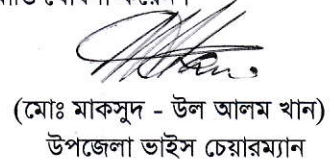 (মোঃ মাকসুদ - উল আলম খান)
উপজেলা ভাইস চেয়ারম্যান